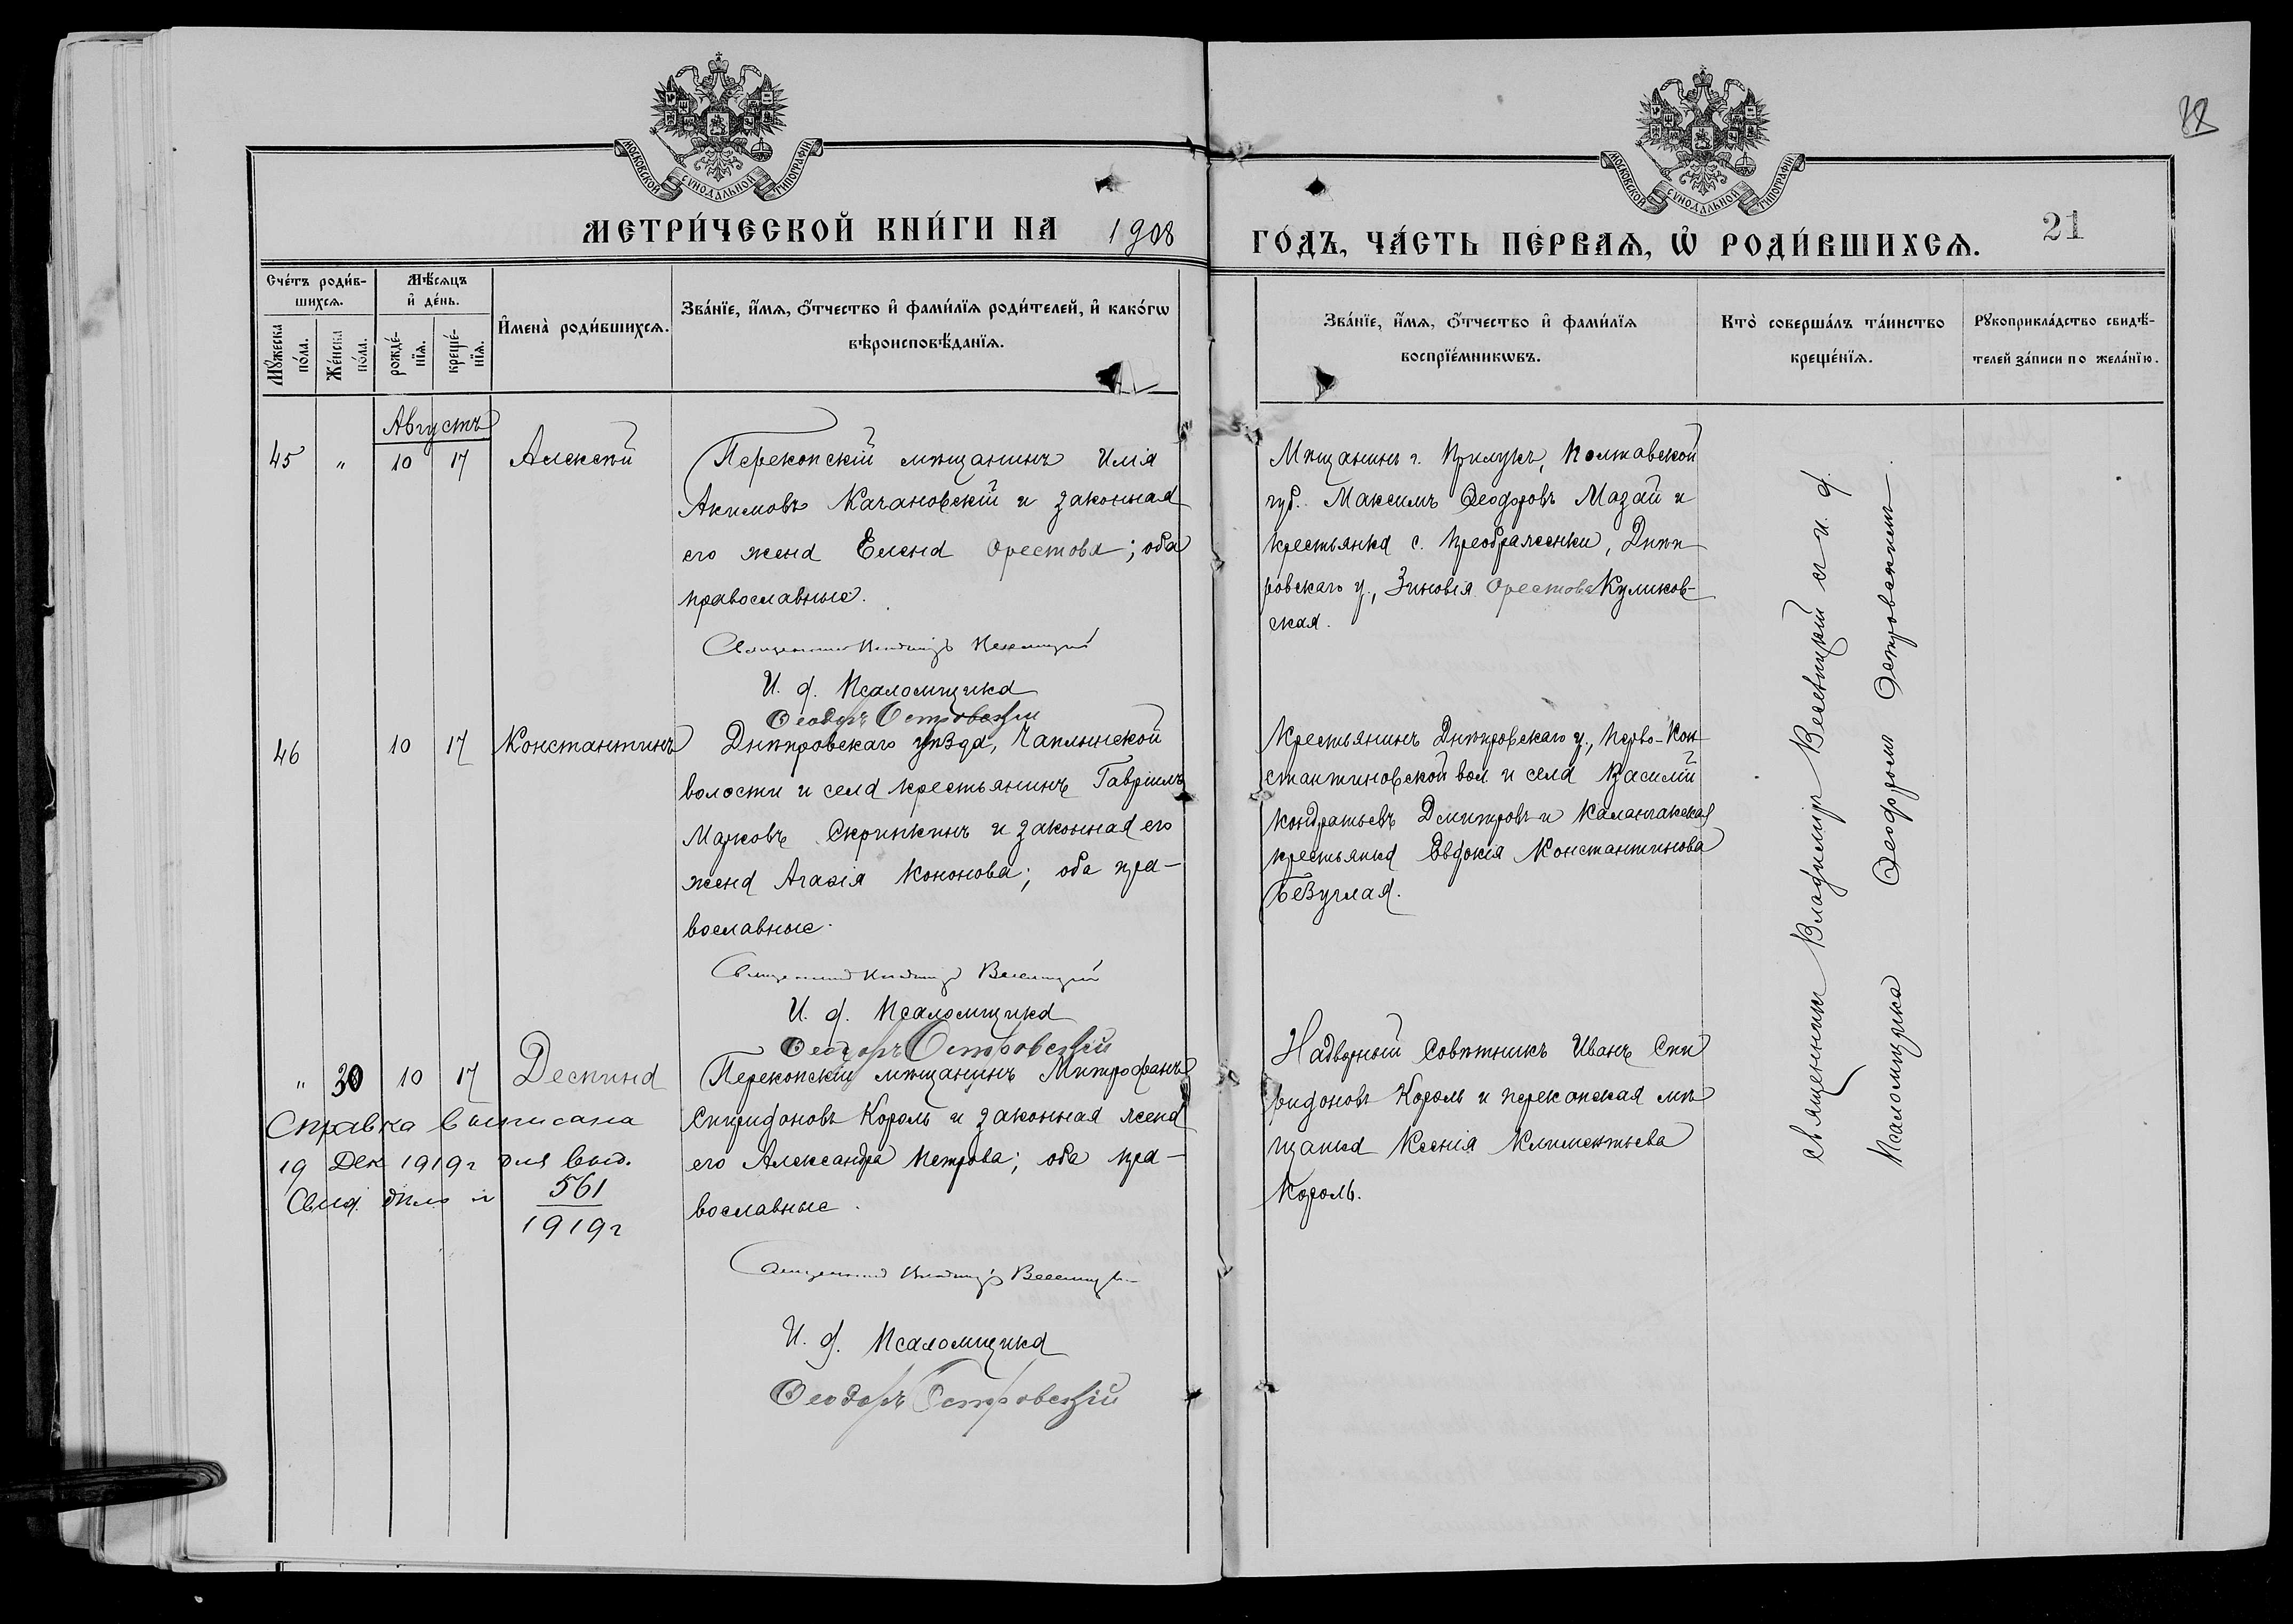 82
МОСКОВСКОЙ СУНОДАЛЬНОЙ ТИПОГРАФІИ
МОСКОВСКОЙ СУНОДАЛЬНОЙ ТИПОГРАФІИ
МЕТРИ́ЧЕСКОЙ КНИ́ГИ НА 1908
ГО́ДЪ, ЧА́СТЬ ПЕ́РВАѦ, Ѡ҆ РОДИ́ВШИХСѦ. 21
Сче́тъ роди́в-
шихсѧ.
Мꙋ́жеска
по́ла.
Же́нска
по́ла.
Мѣ́сѧцъ
и҆ де́нь.
рожде́-
нїѧ.
креще́-
нїѧ.
И҆мена̀ роди́вшихсѧ.
Зва́нїе, и҆́мѧ, ѻ҆́тчество и҆ фами́лїѧ роди́телей, и҆ како́гѡ
вѣроисповѣ́данїѧ.
Зва́нїе, и҆́мѧ, ѻ҆́тчество и҆ фами́лїѧ
воспрїе́мникѡвъ.
Кто̀ соверша́лъ та́инство
креще́нїѧ.
Рꙋкоприкла́дство свидѣ́-
телей за́писи по жела́нїю.
Августъ
45 " 10 17 Алексѣй
Перекопскій мѣщанинъ Илія
Акимовъ Качановскій и законная
его жена Елена Орестова; оба
православные.
Священникъ Владиміръ Веселицкій
И. д. Псаломщика
Ѳеодоръ Островскій
Мѣщанинъ г. Прилукъ, Полтавской
губ. Максимъ Ѳеодоровъ Мазай и
крестьянка с. Преображенки, Днѣп-
ровскаго у., Зиновія Орестова Куликов-
ская.
46 10 17 Константинъ
Днѣпровскаго уѣзда, Чаплынской
волости и села крестьянинъ Гавріилъ
Марковъ Скрипкинъ и законная его
жена Агафія Кононова; оба пра-
вославные.
Священникъ Владиміръ Веселицкій
И. д. Псаломщика
Ѳеодоръ Островскій
Крестьянинъ Днѣпровскаго у., Перво-Кон-
стантиновской вол. и села Василій
Кондратьевъ Дмитровъ и Каланчакская
крестьянка Евдокія Константинова
Безуглая.
" 30 10 17 Деспина
Перекопскій мѣщанинъ Митрофанъ
Спиридоновъ Король и законная жена
его Александра Петрова; оба пра-
вославные.
Священникъ Владиміръ Веселицкій
И. д. Псаломщика
Ѳеодоръ Островскій
Справка выписана
19 Дек 1919 г для выд.
Свид. дѣло №
561
1919 г
Надворный Совѣтникъ Иванъ Спи
ридоновъ Король и перекопская мѣ
щанка Ксенія Климентьева
Король.
Священникъ Владиміръ Веселицкій съ и. д.
Псаломщика Ѳеодоромъ Островскимъ